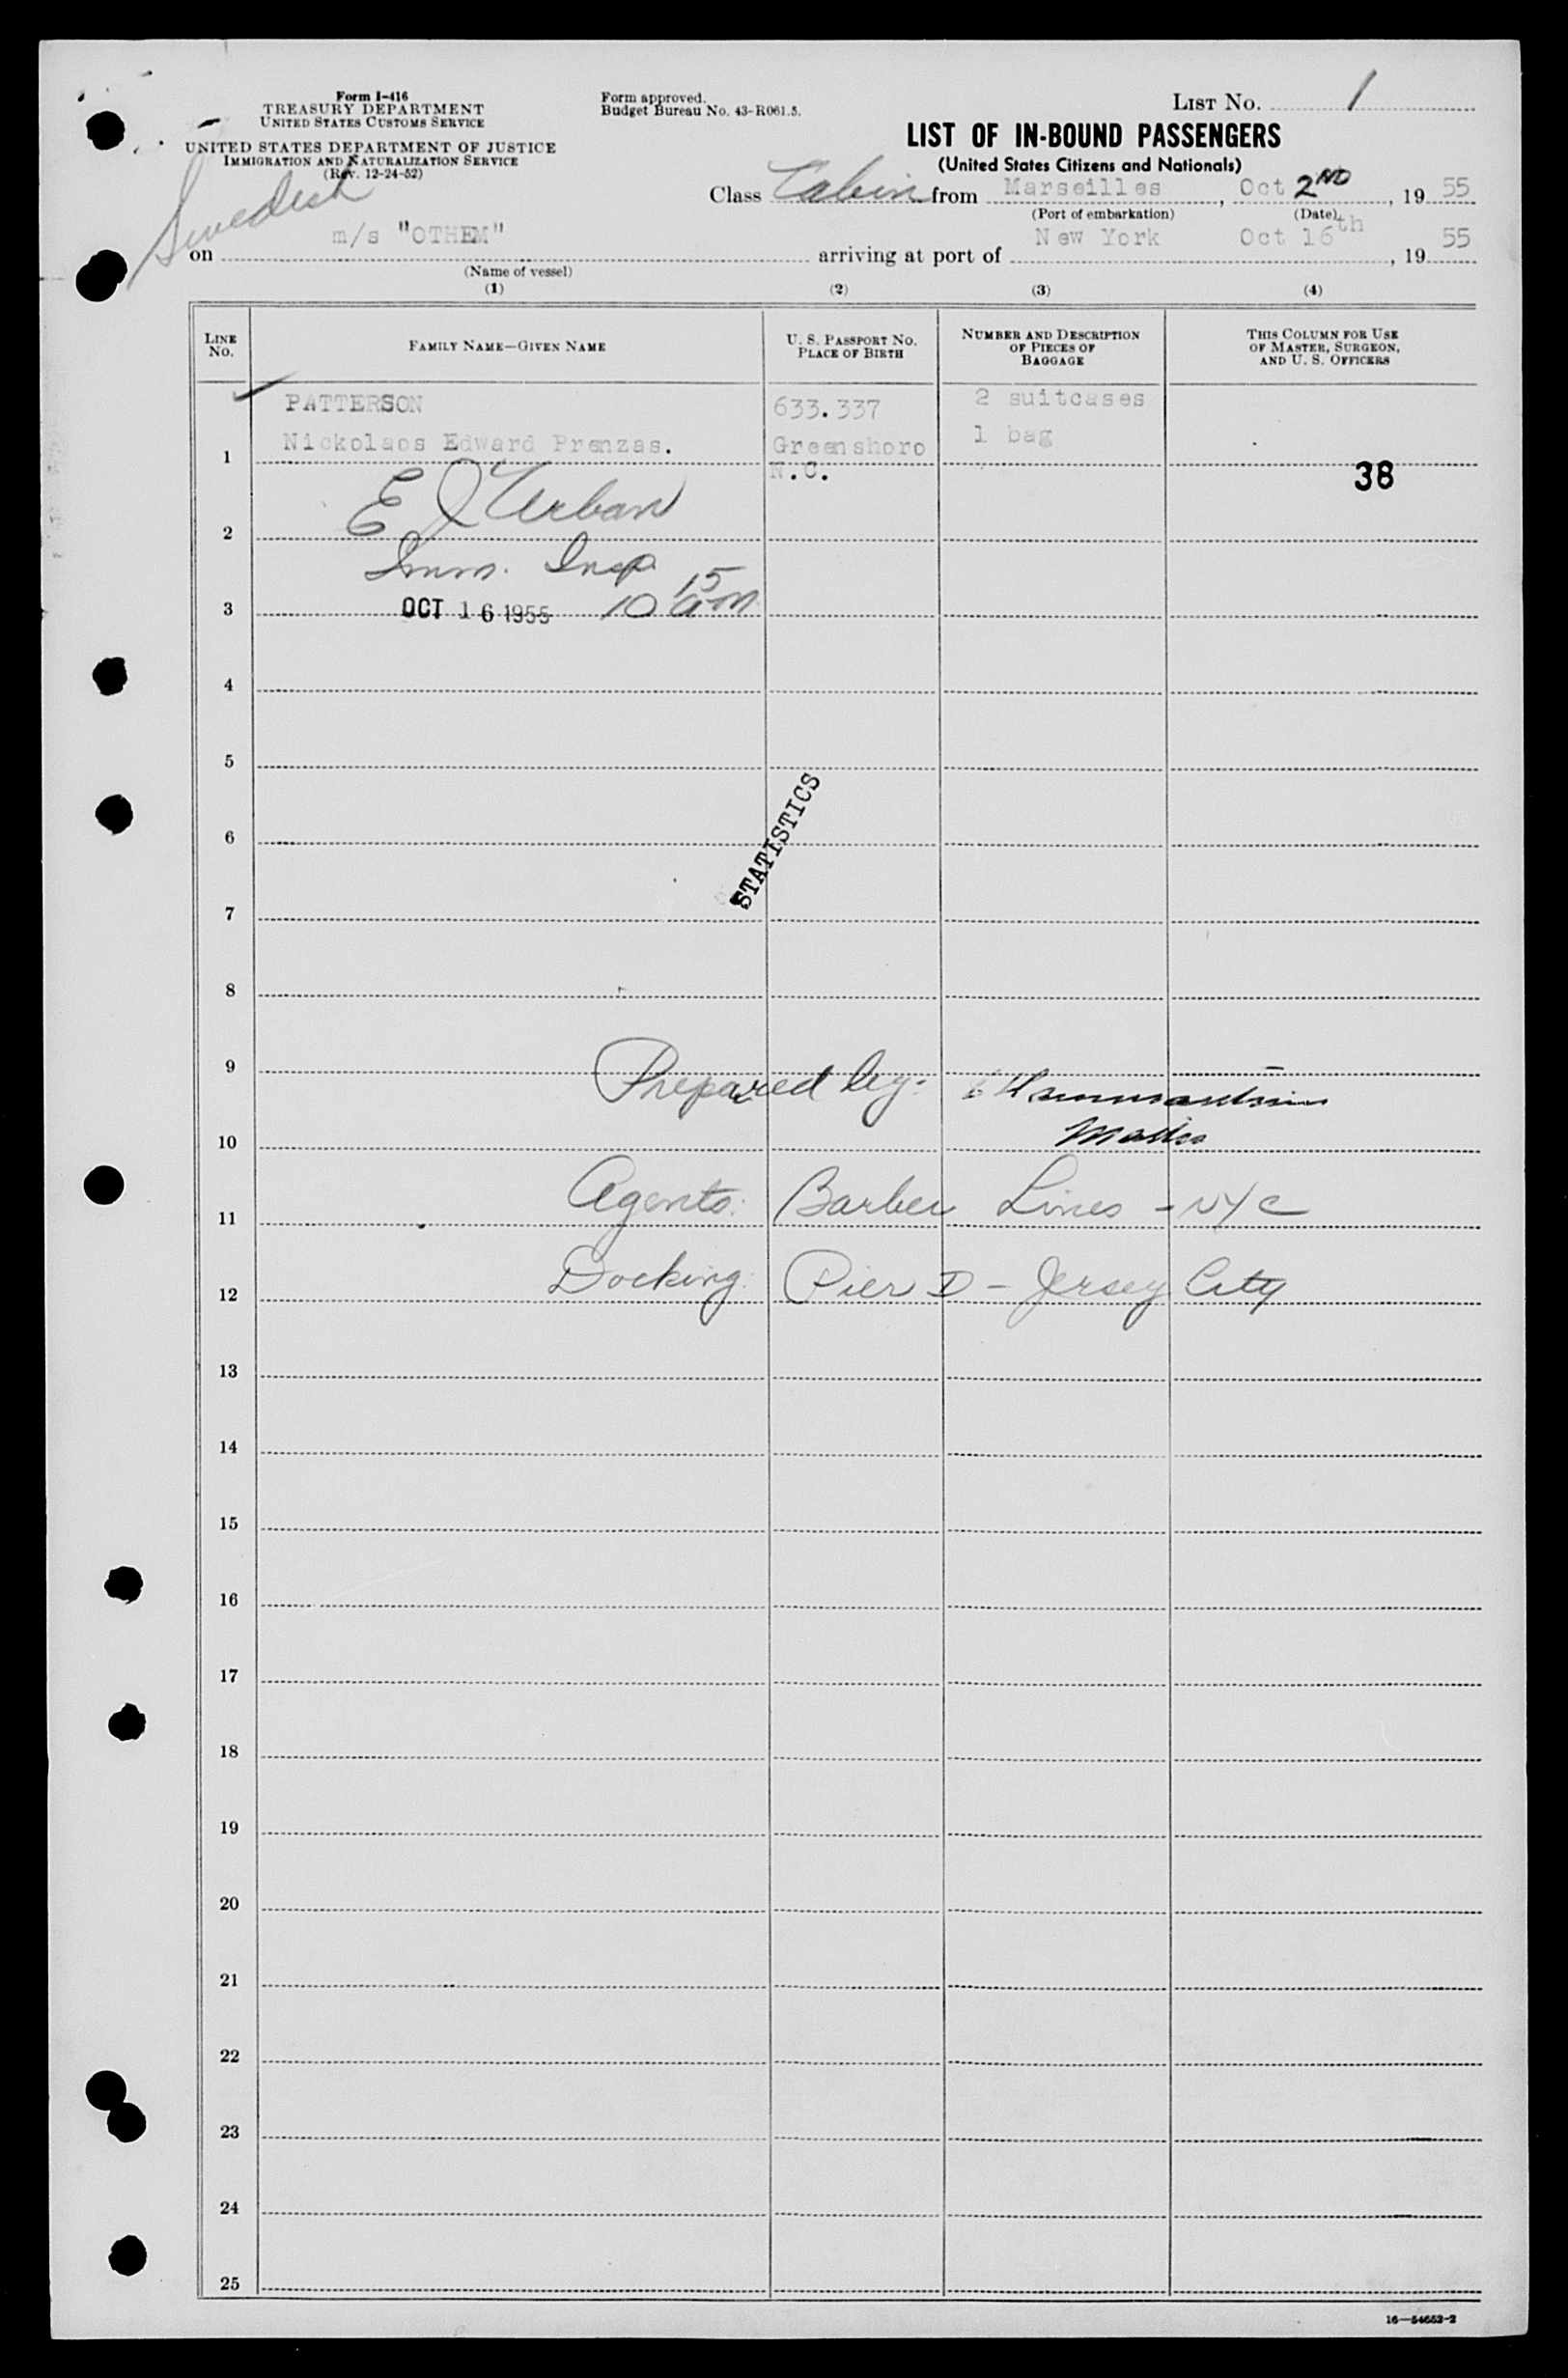 Form I-416
TREASURY DEPARTMENT
UNITED STATES CUSTOMS SERVICE
UNITED STATES DEPARTMENT OF JUSTICE
IMMIGRATION AND NATURALIZATION SERVICE
(Rev. 12-24-52)
Form approved.
Budget Bureau No. 43-R061.5.
LIST NO. 1
LIST OF IN-BOUND PASSENGERS
(United States Citizens and Nationals)
Class Cabin from Marseilles, Oct 2ND, 19 55
(Port of embarkation) (Date)
Swedish
on m/s "OTHEM" arriving at port of New York Oct 16th, 19 55
(Name of vessel)
(1) (2) (3) (4)
LINE NO.
FAMILY NAME—GIVEN NAME
U. S. PASSPORT NO.
PLACE OF BIRTH
NUMBER AND DESCRIPTION
OF PIECES OF
BAGGAGE
THIS COLUMN FOR USE
OF MASTER, SURGEON,
AND U. S. OFFICERS
PATTERSON 633.337 2 suitcases
1 Nickolaos Edward Prenzas. Greensboro 1 bag
N.C. 38
E J Urban
2
Imm. Insp.
3 OCT 16 1955 10 15 am
4
5
STATISTICS
6
7
8
9
Prepared by:
10
Agents: Barber Lines - NYC
11
Docking: Pier D - Jersey City
12
13
14
15
16
17
18
19
20
21
22
23
24
25
16—54652-2